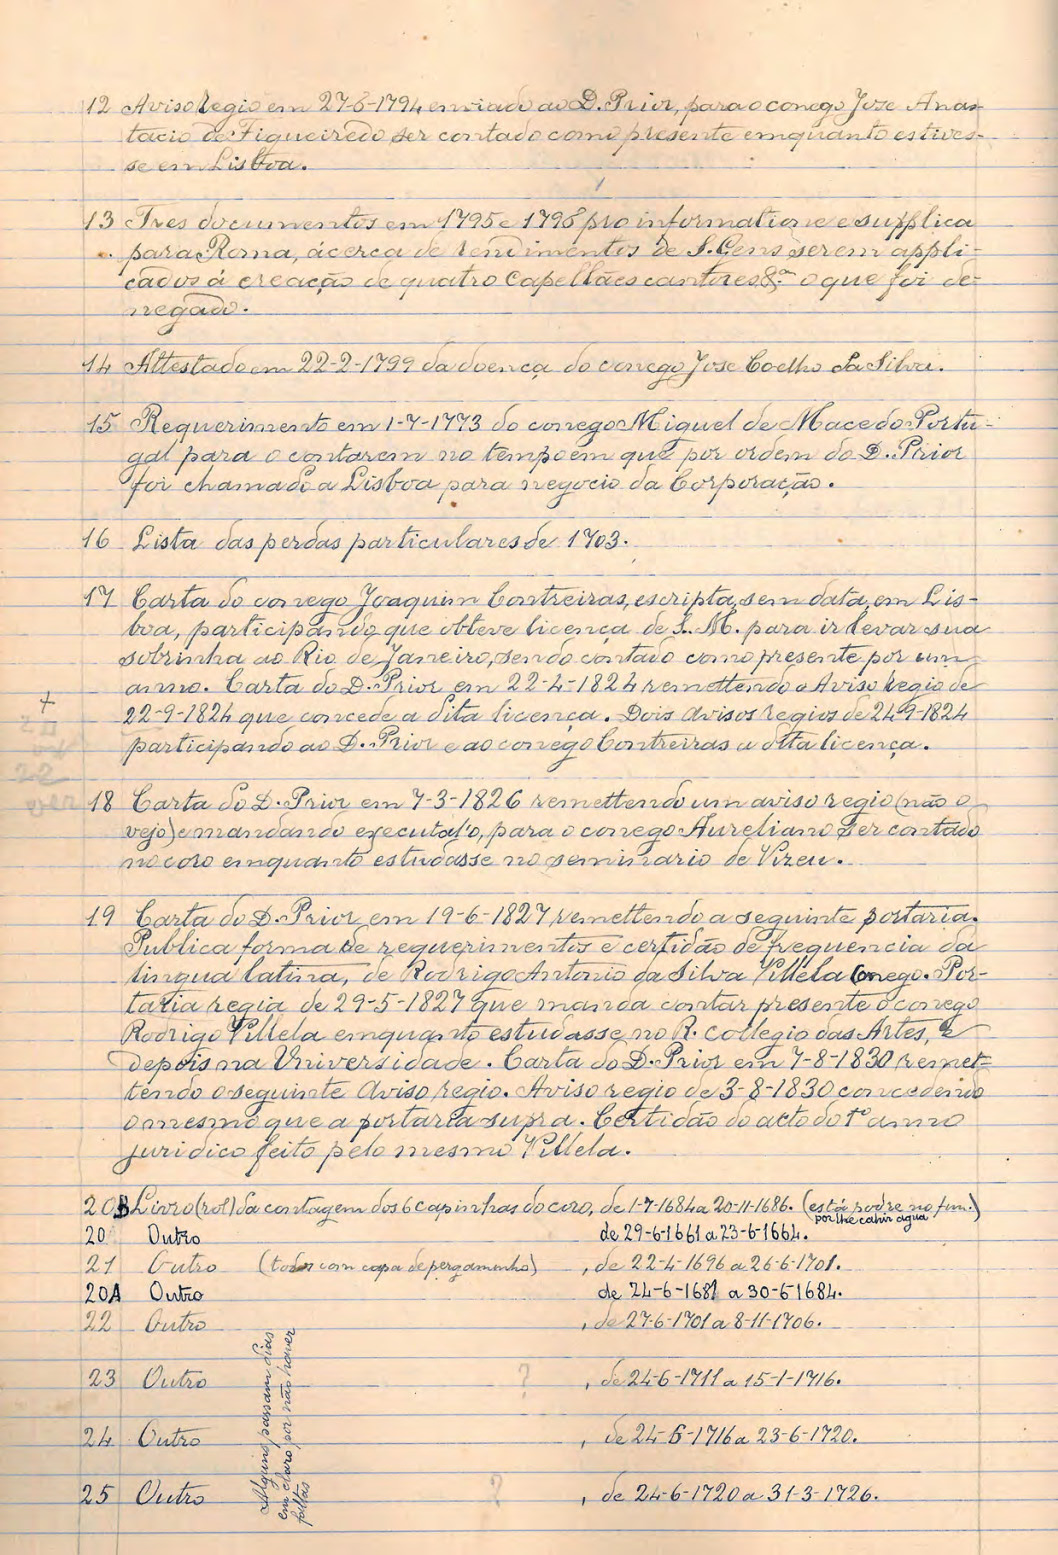 12 Aviso regio em 27-6-1794 enviado ao D. Prior, para o conego Jose Anas-
tacio de Figueiredo ser contado como presente emquanto estives-
se em Lisboa.
13 Tres documentos em 1795 e 1798 pro informatione e supplica
para Roma, ácerca de rendimentos de S. Gens serem appli-
cados á creação de quatro Capellães cantores &.ª o que foi de-
negado.
14 Attestado em 22-2-1799 da doença do conego Jose Coelho da Silva.
15 Requerimento em 1-7-1773 do conego Miguel de Macedo Portu-
gal para o contarem no tempo em que por ordem do D. Prior
foi chamado a Lisboa para negocio da Corporação.
16 Lista das perdas particulares de 1703.
17 Carta do conego Joaquim Contreiras, escripta, sem data, em Lis-
boa, participando que obteve licença de S. M. para ir levar sua
sobrinha ao Rio de Janeiro, sendo contado como presente por um
anno. Carta do D. Prior em 22-4-1824 remettendo o Aviso regio de
22-9-1824 que concede a dita licença. Dois avisos regios de 24-9-1824
participando ao D. Prior e ao conego Contreiras a dita licença.
+
22
ver
18 Carta do D. Prior em 7-3-1826 remettendo um aviso regio (não o
vejo) e mandando executal'o, para o conego Aureliano ser contado
no coro emquanto estudasse no seminario de Vizeu.
19 Carta do D. Prior em 19-6-1827 remettendo a seguinte portaria.
Publica forma de requerimentos e certidão de frequencia da
lingua latina, de Rodrigo Antonio da Silva Villela Conego. Por-
taria regia de 29-5-1827 que manda contar presente o conego
Rodrigo Villela emquanto estudasse no R. Collegio das Artes, e
depois na Universidade. Carta do D. Prior em 7-8-1830 remet-
tendo o seguinte Aviso regio. Aviso regio de 3-8-1830 concedendo
o mesmo que a portaria supra. Certidão do acto do 1º anno
juridico feito pelo mesmo Villela.
20B Livro (rol) da contagem dos 6 capinhas do coro, de 1-7-1684 a 20-11-1686. (está podre no fim.)
por lhe cahir agua
20 Outro de 29-6-1661 a 23-6-1664.
21 Outro (todos com capa de pergaminho), de 22-4-1696 a 26-6-1701.
20A Outro de 24-6-1681 a 30-6-1684.
22 Outro, de 27-6-1701 a 8-11-1706.
23 Outro ? , de 24-6-1711 a 15-1-1716.
24 Outro, de 24-6-1716 a 23-6-1720.
25 Outro ? , de 24-6-1720 a 31-3-1726.
Alguns passam dias
em claro por não haver
faltas